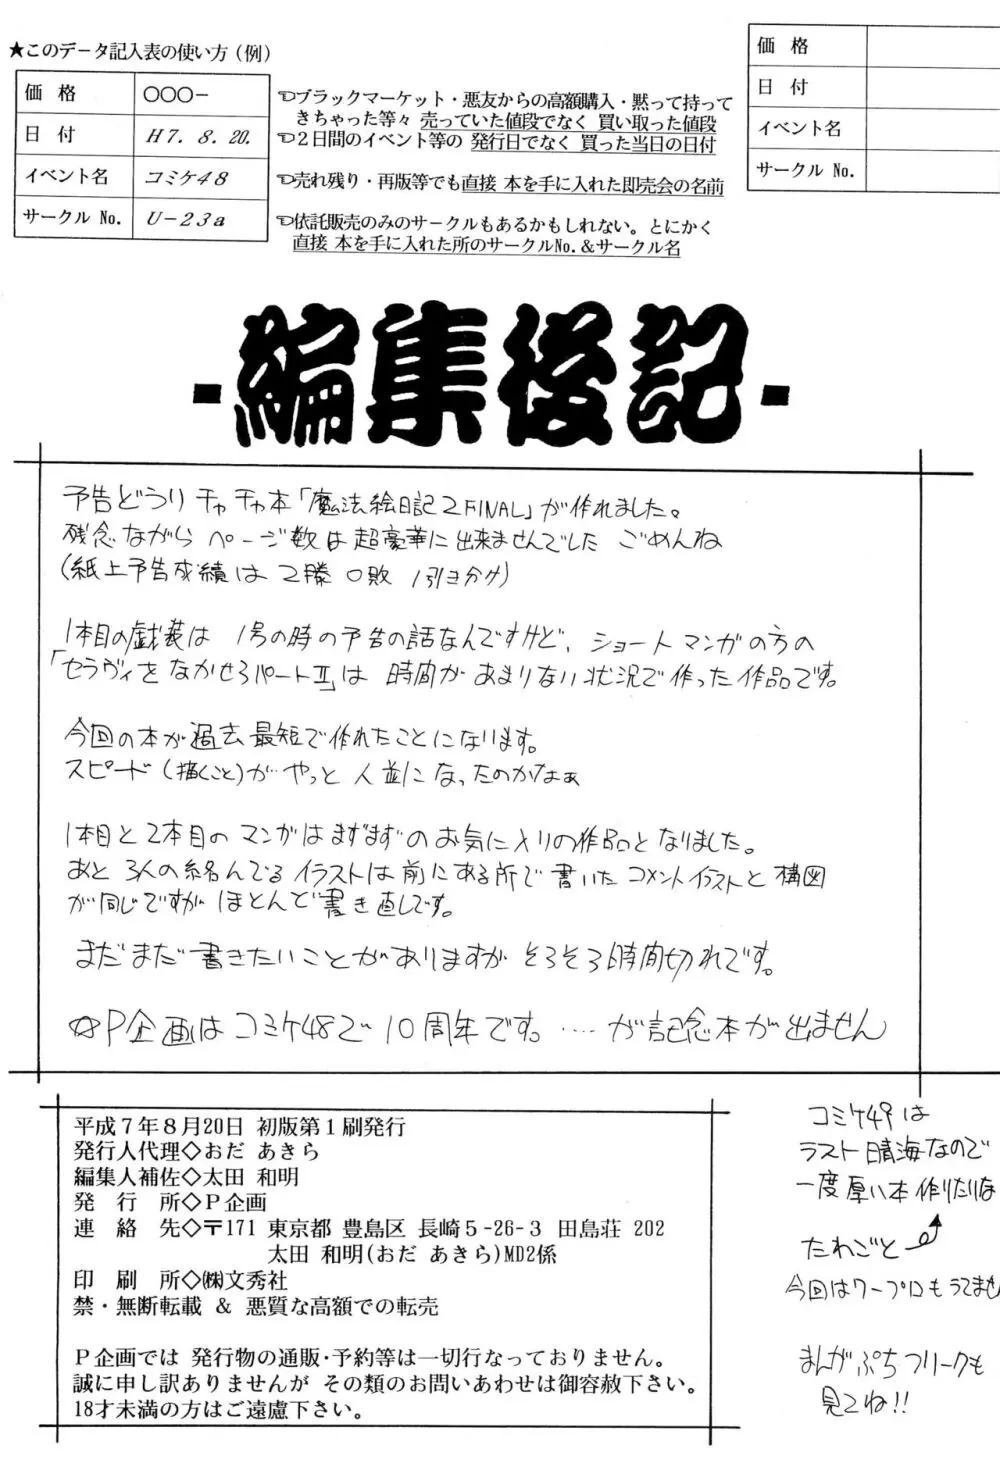 ★このデータ記入表の使い方（例）
価格 ○○○−
日付 H7.8.20.
イベント名 コミケ48
サークル No. U−23a
ブラックマーケット・悪友からの高額購入・黙って持って
きちゃった等々 売っていた値段でなく 買い取った値段
2日間のイベント等の 発行日でなく 買った当日の日付
売れ残り・再版等でも直接 本を手に入れた即売会の名前
依託販売のみのサークルもあるかもしれない。とにかく
直接 本を手に入れた所のサークルNo.＆サークル名
価格
日付
イベント名
サークル No.
-編集後記-
予告どうり チャチャ本「魔法絵日記2FINAL」が作れました。
残念ながら ページ数は超豪華に出来ませんでした ごめんね
(紙上予告成績は 2勝 0敗 1引き分け)
1本目の戯装は 1号の時の予告の話なんですけど、ショートマンガの方の
「セラヴィをなかせろパートⅡ」は 時間があまりない状況で作った作品です。
今回の本が過去最短で作れたことになります。
スピード(描くこと)が やっと 人並になったのかなぁ
1本目と2本目のマンガはまずまずのお気に入りの作品となりました。
あと 3人の絡んでるイラストは前にある所で書いたコメントイラストと構図
が同じですが ほとんど書き直しです。
まだまだ書きたいことがありますが そろそろ時間切れです。
☆P企画はコミケ48で10周年です。……が記念本が出ません
平成7年8月20日 初版第1刷発行
発行人代理◇おだ あきら
編集人補佐◇太田 和明
発行所◇P企画
連絡先◇〒171 東京都 豊島区 長崎5-26-3 田島荘 202
太田 和明(おだ あきら)MD2係
印刷所◇㈱文秀社
禁・無断転載 ＆ 悪質な高額での転売
P企画では 発行物の通販・予約等は一切行なっておりません。
誠に申し訳ありませんが その類のお問いあわせは御容赦下さい。
18才未満の方はご遠慮下さい。
コミケ49は
ラスト晴海なので
一度厚い本作りたいな
たわごと
今回はワープロもうてません
まんがぷちフリークも
見てね!!